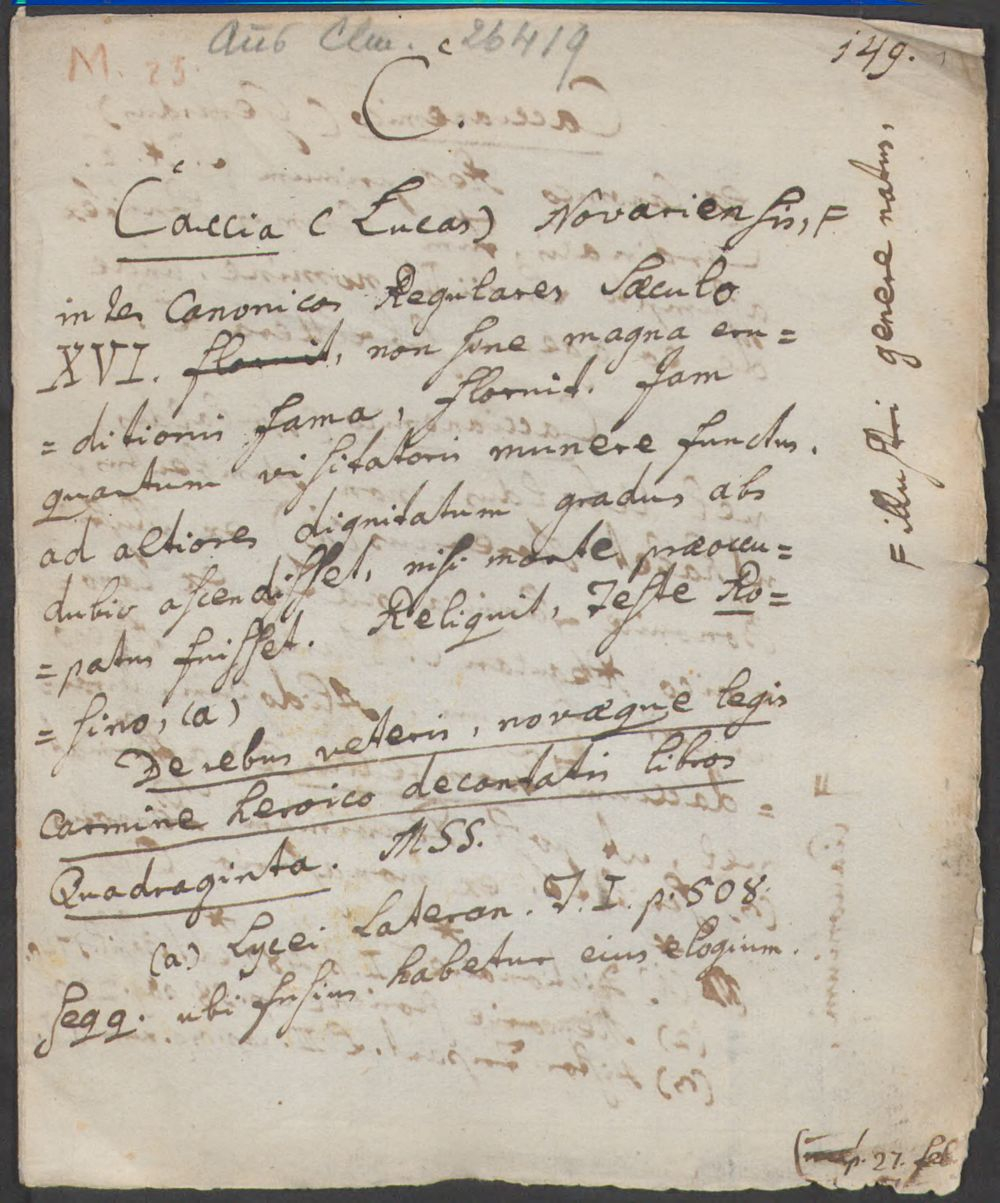 Aus Clm. 26419
M. 25.
149.
C.
Caccia (Lucas) Novariensis, F
inter Canonicos Regulares Sæculo
XVI. floruit, non sine magna eru=
=ditionis fama, floruit. Jam
quartum visitatoris munere functus.
ad altiores dignitatum gradus abs
dubio ascendisset, nisi morte præoccu=
=patus fuisset. Reliquit, Teste Ro=
=sino, (a)
De rebus veteris, novæque legis
Carmine heroico decantatis libros
Quadraginta. MSS.
(a) Lycei Lateran. T. I. p. 508.
seqq. ubi fusius habetur eius elogium.
F illustri genere natus,
p. 27. feb